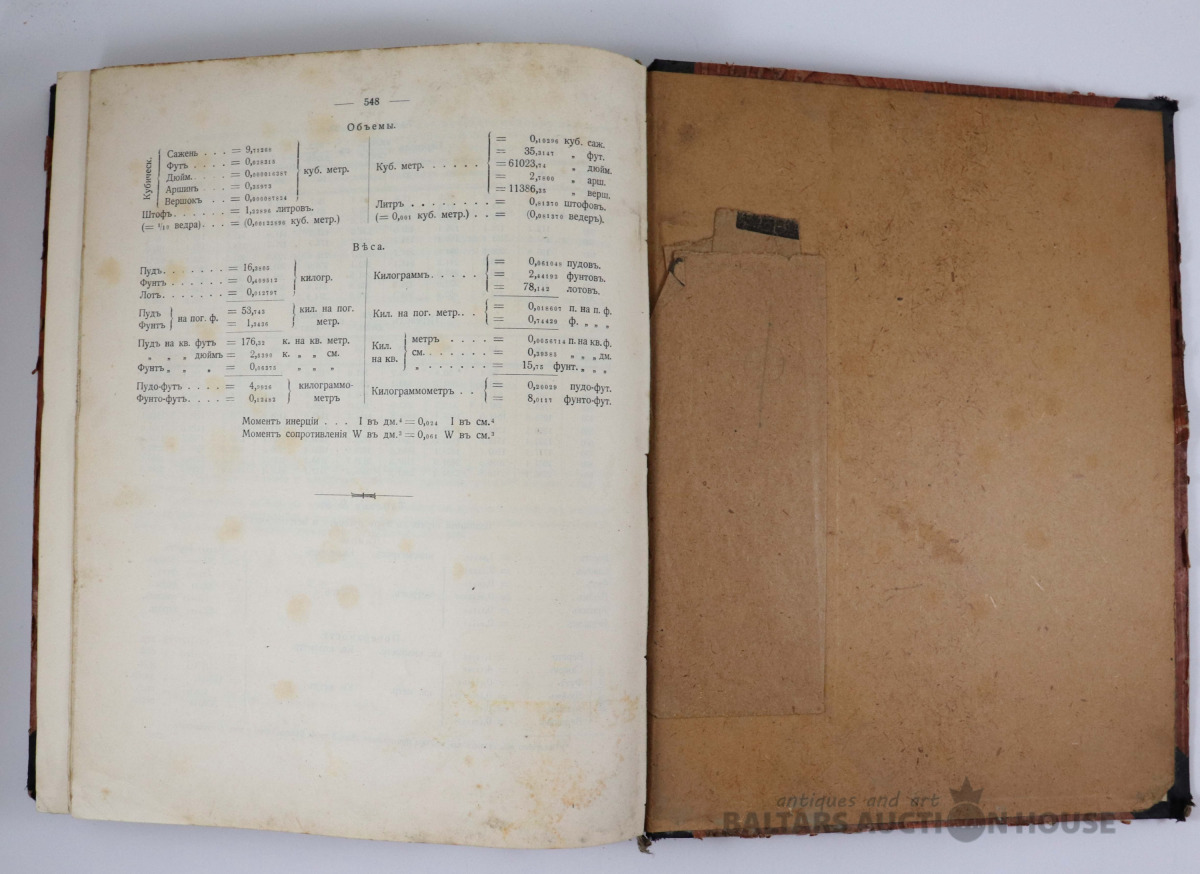 — 548 —
Объемы.
Кубическ.
Сажень . . . = 9,71269
Футъ . . . . = 0,028315
Дюйм. . . . = 0,000016387
Аршинъ . . . = 0,35973
Вершокъ . . = 0,000087824
куб. метр.
Штофъ. . . . . . = 1,22996 литровъ.
(= 1/10 ведра). . . = (0,00122996 куб. метр.)
Куб. метр. . . . . .
= 0,10296 куб. саж.
= 35,3147 „ фут.
= 61023,74 „ дюйм.
= 2,7800 „ арш.
= 11386,35 „ верш.
Литръ . . . . . . . . = 0,81370 штофовъ.
(= 0,001 куб. метр.) . . = (0,081370 ведеръ).
Вѣса.
Пудъ. . . . . . . = 16,3805
Фунтъ . . . . . . = 0,409512
Лотъ. . . . . . . = 0,012797
килогр.
Пудъ
Фунтъ
на пог. ф.
= 53,743
= 1,3436
кил. на пог.
метр.
Пудъ на кв. футъ = 176,32 к. на кв. метр.
„ „ „ дюймъ = 2,5390 к. „ „ см.
Фунтъ „ „ „ = 0,06275 „ „ „
Пудо-футъ . . . . = 4,9928
Фунто-футъ. . . . = 0,12482
килограммо-
метръ
Килограммъ. . . . . .
= 0,061048 пудовъ.
= 2,44193 фунтовъ.
= 78,142 лотовъ.
Кил. на пог. метр. . .
= 0,018607 п. на п. ф.
= 0,74429 ф. „ „ „
Кил.
на кв.
метръ . . . . = 0,0056714 п. на кв. ф.
см. . . . . . = 0,39385 „ „ „ дм.
„ . . . . . . = 15,75 фунт. „ „ „
Килограммометръ . .
= 0,20029 пудо-фут.
= 8,0117 фунто-фут.
Моментъ инерціи . . . I въ дм.⁴ = 0,024 I въ см.⁴
Моментъ сопротивленія W въ дм.³ = 0,061 W въ см.³
antiques and art
BALTARS AUCTION HOUSE